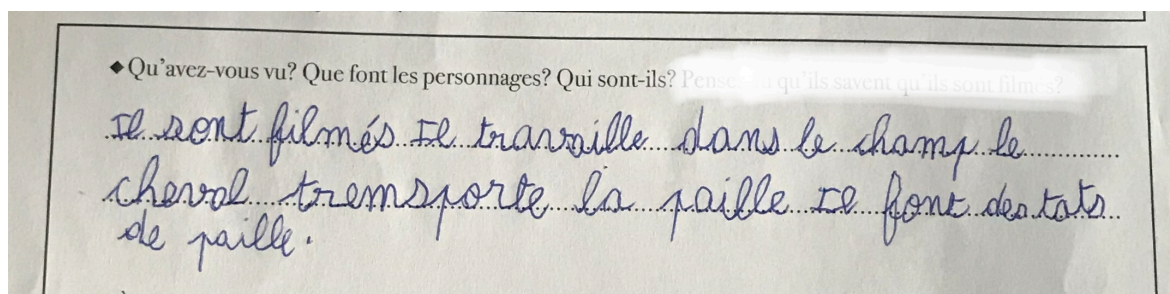 ◆Qu'avez-vous vu? Que font les personnages? Qui sont-ils? Pensez-vous qu'ils savent qu'ils sont filmés?
Il sont filmés Il travaille dans le champ le
cheval tremsporte la paille Il font des tats
de paille.